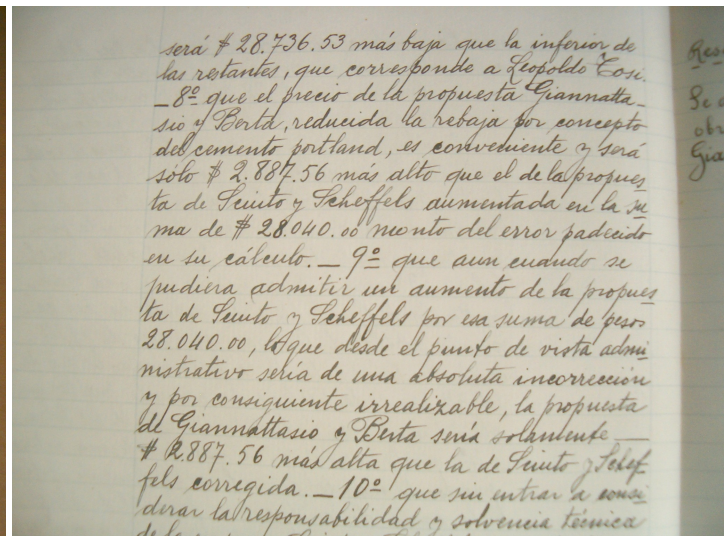 será $ 28.736.53 más baja que la inferior de
las restantes, que corresponde a Leopoldo Tosi.
_ 8º que el precio de la propuesta Giannatta_
sio y Berta, reducida la rebaja por concepto
del cemento portland, es conveniente y será
sólo $ 2.887.56 más alto que el de la propues
ta de Sciuto y Scheffels aumentada en la su
ma de $ 28.040.00 monto del error padecido
en su cálculo. _ 9º que aun cuando se
pudiera admitir un aumento de la propues
ta de Sciuto y Scheffels por esa suma de pesos
28.040.00, lo que desde el punto de vista admi
nistrativo sería de una absoluta incorrección
y por consiguiente irrealizable, la propuesta
de Giannattasio y Berta sería solamente _
$ 2.887.56 más alta que la de Sciuto y Schef
fels corregida. _ 10º que sin entrar a consi
derar la responsabilidad y solvencia técnica
Res
Se
obr
Gia